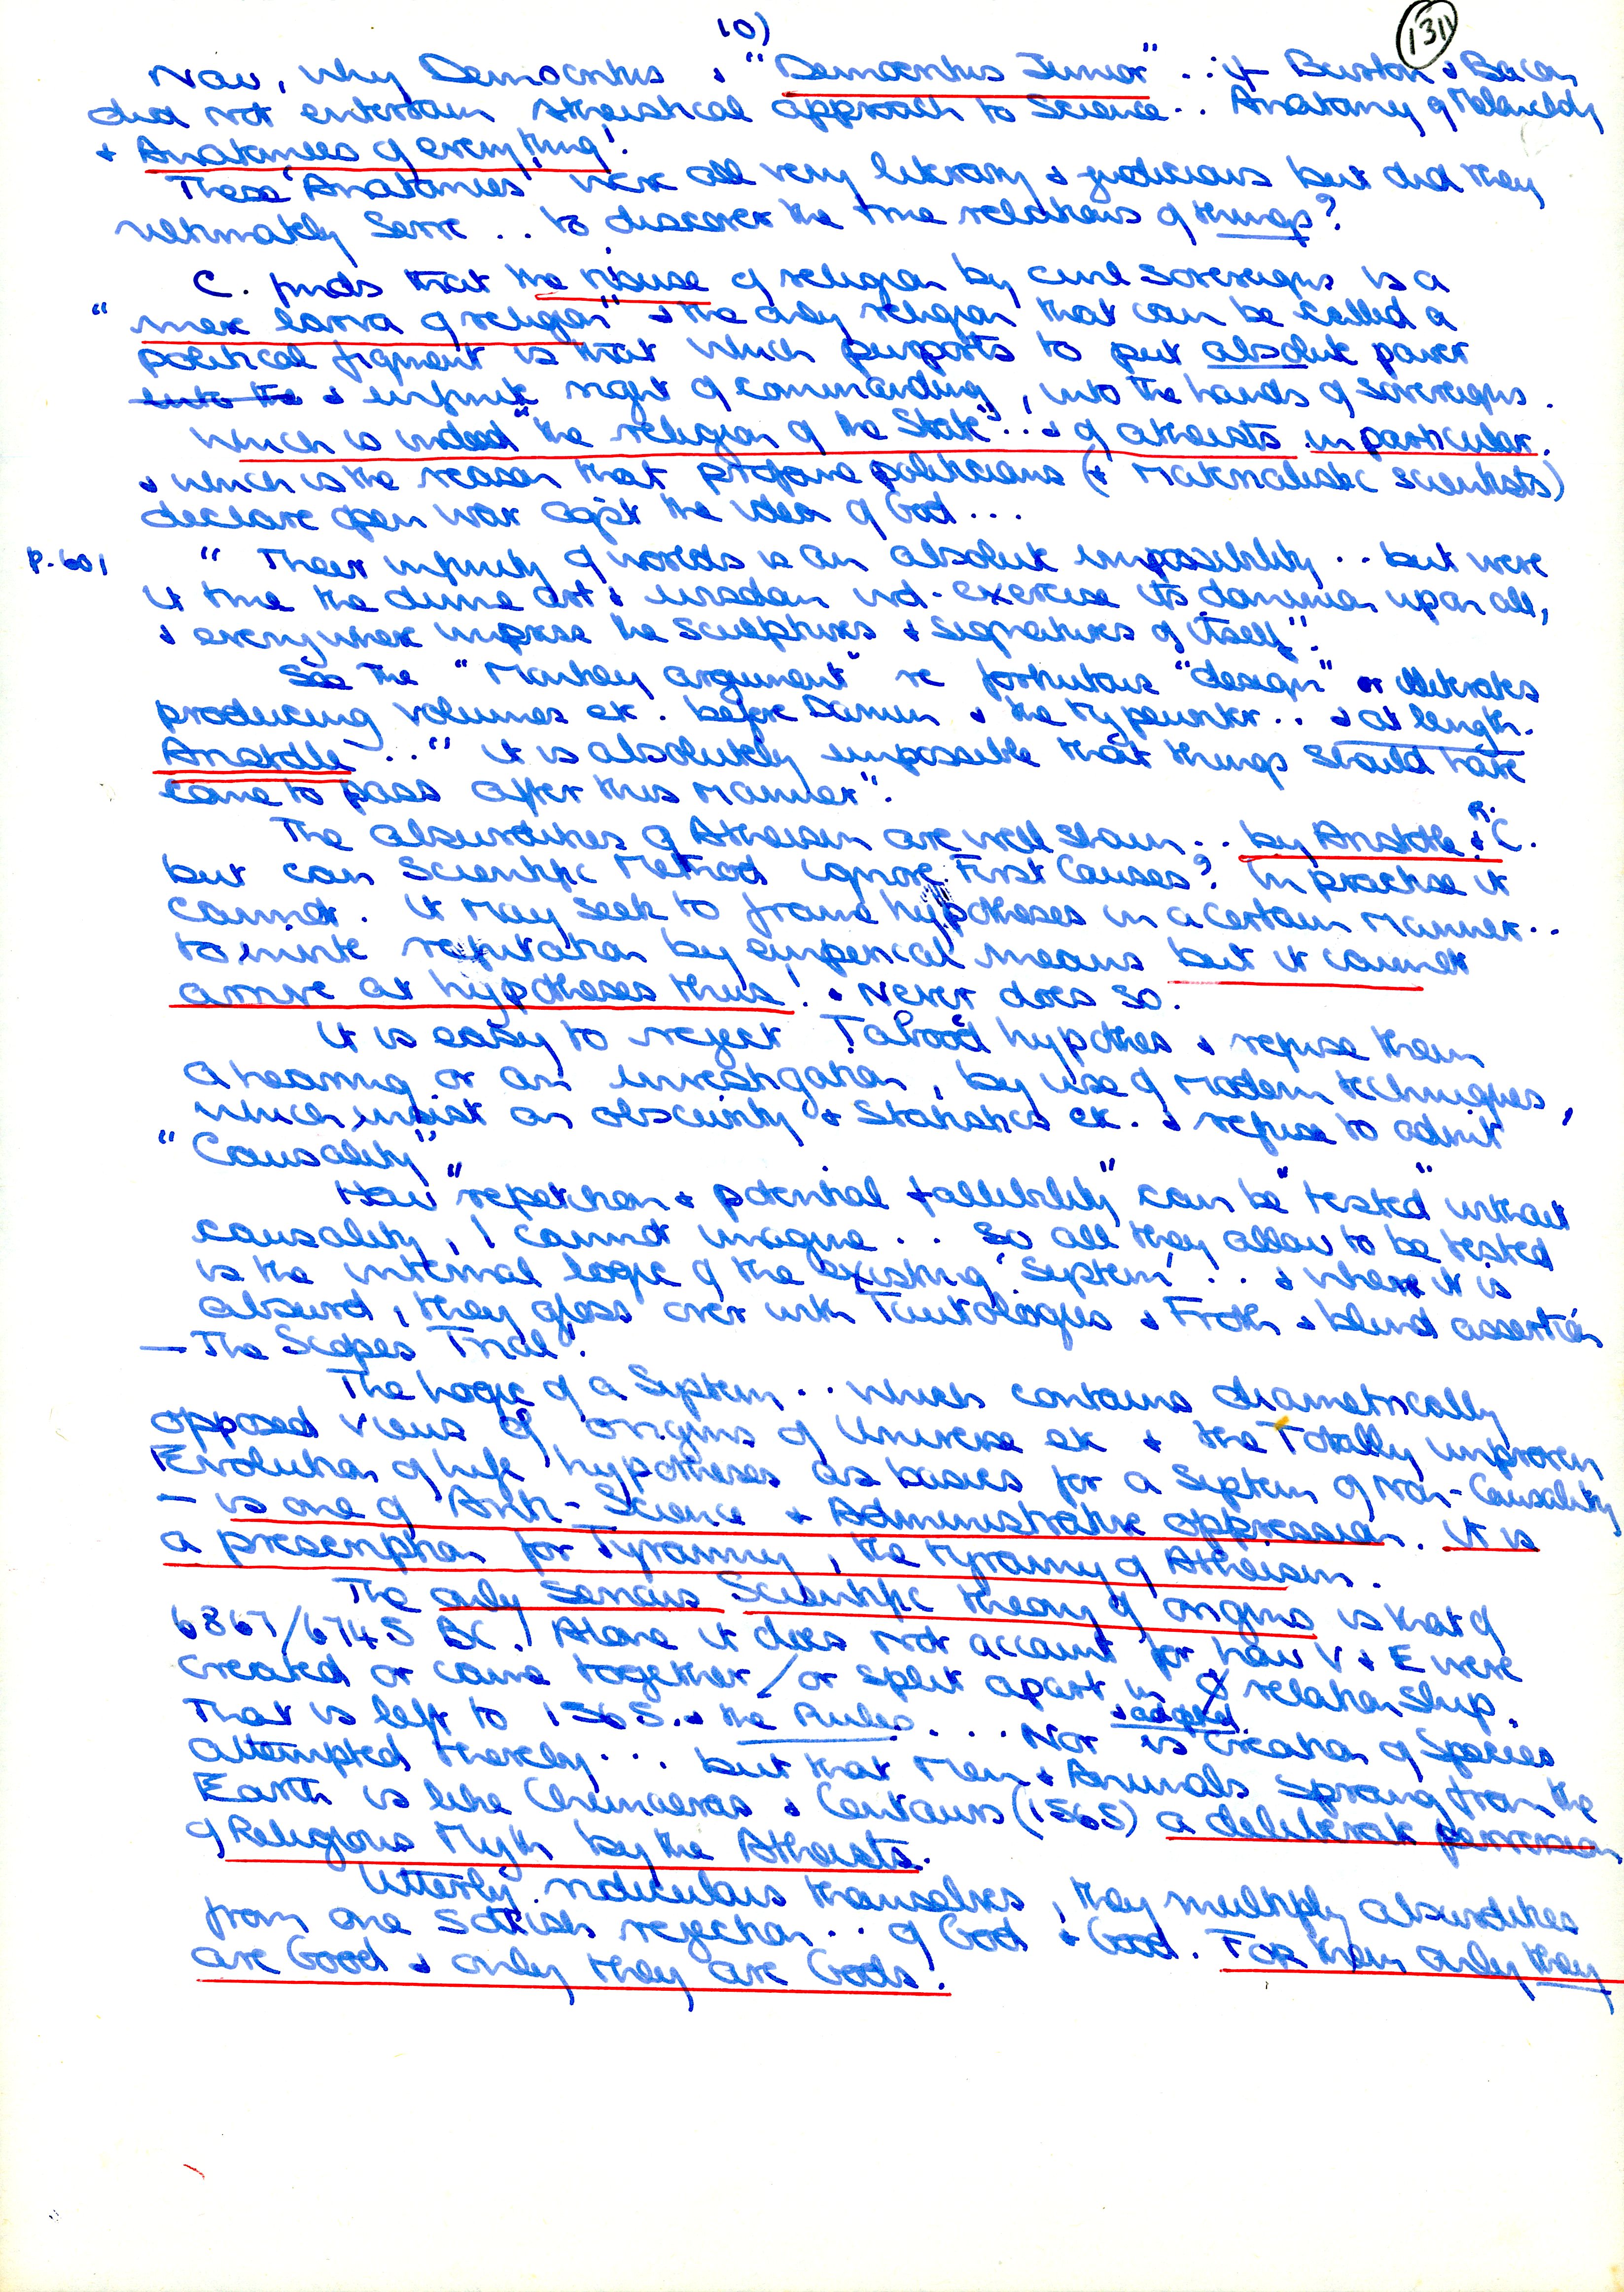 10)
1311
Now, why Democritus & "Democritus Junior" .. if Burton & Bacon
did not entertain Atheistical approach to Science .. Anatomy of Melancholy
& Anatomies of everything!
These 'Anatomies' were all very literary & judicious but did they
ultimately serve .. to discover the true relations of things?
C. finds that the misuse of religion by civil sovereigns is a
"mere larva of religion" & the only religion that can be called a
political figment is that which purports to put absolute power
into the & infinite right of commanding, into the hands of sovereigns.
Which is indeed "the religion of the State" .. & of atheists in particular.
& which is the reason that profane politicians (& Materialistic scientists)
declare open war agst the idea of God ...
p.601 " Their infinity of worlds is an absolute impossibility .. but were
it true the divine art & wisdom wd. exercise its dominion upon all,
& everywhere impress the sculptures & signatures of itself".
See The "Monkey argument" re fortuitous "design" or illiterates
producing volumes etc. before Darwin & the typewriter .. & at length.
Aristotle .. " it is absolutely impossible that things should have
come to pass after this manner".
The absurdities of Atheism are well shown .. by Aristotle & R. C.
but can Scientific Method ignore First Causes? In practise it
cannot. It may seek to frame hypotheses in a certain manner ..
to invite refutation by emperical means but it cannot
arrive at hypotheses thus! & Never does so.
It is easy to reject Taboo'd hypothes & refuse them
a hearing or an investigation, by use of modern techniques,
which insist on obscurity & Statistics etc. & refuse to admit
"Causality"
How "repetition & potential fallibility" can be "tested" without
causality, I cannot imagine .. So all they allow to be tested
is the internal logic of the existing 'System' .. & where it is
absurd, they gloss over with Tautologies & Froth & blind assertion
— The Scopes Trial!
The Logic of a System .. which contains diametrically
opposed views of origins of Universe etc & the Totally unproven
Evolution of life hypotheses as basics for a System of Non-Causality
— is one of Anti-Science & Administrative oppression. It is
a prescription for Tyranny, the tyranny of Atheism.
The only serious Scientific theory of origins is that of
6867/6745 BC! Alone it does not account for how V & E were
created or came together/or split apart in relationship.
That is left to 1365. & the Rules .... Nor is & adapted Creation of Species
attempted thereby ... but that Men & Animals sprang from the
Earth is like Chimaeras & Centaurs (1365) a deliberate perversion
of Religious Myth by the Atheists.
Utterly ridiculous themselves, they multiply absurdities
from one sottish rejection .. of God & Good. For them only they
are Good & only they are Gods!